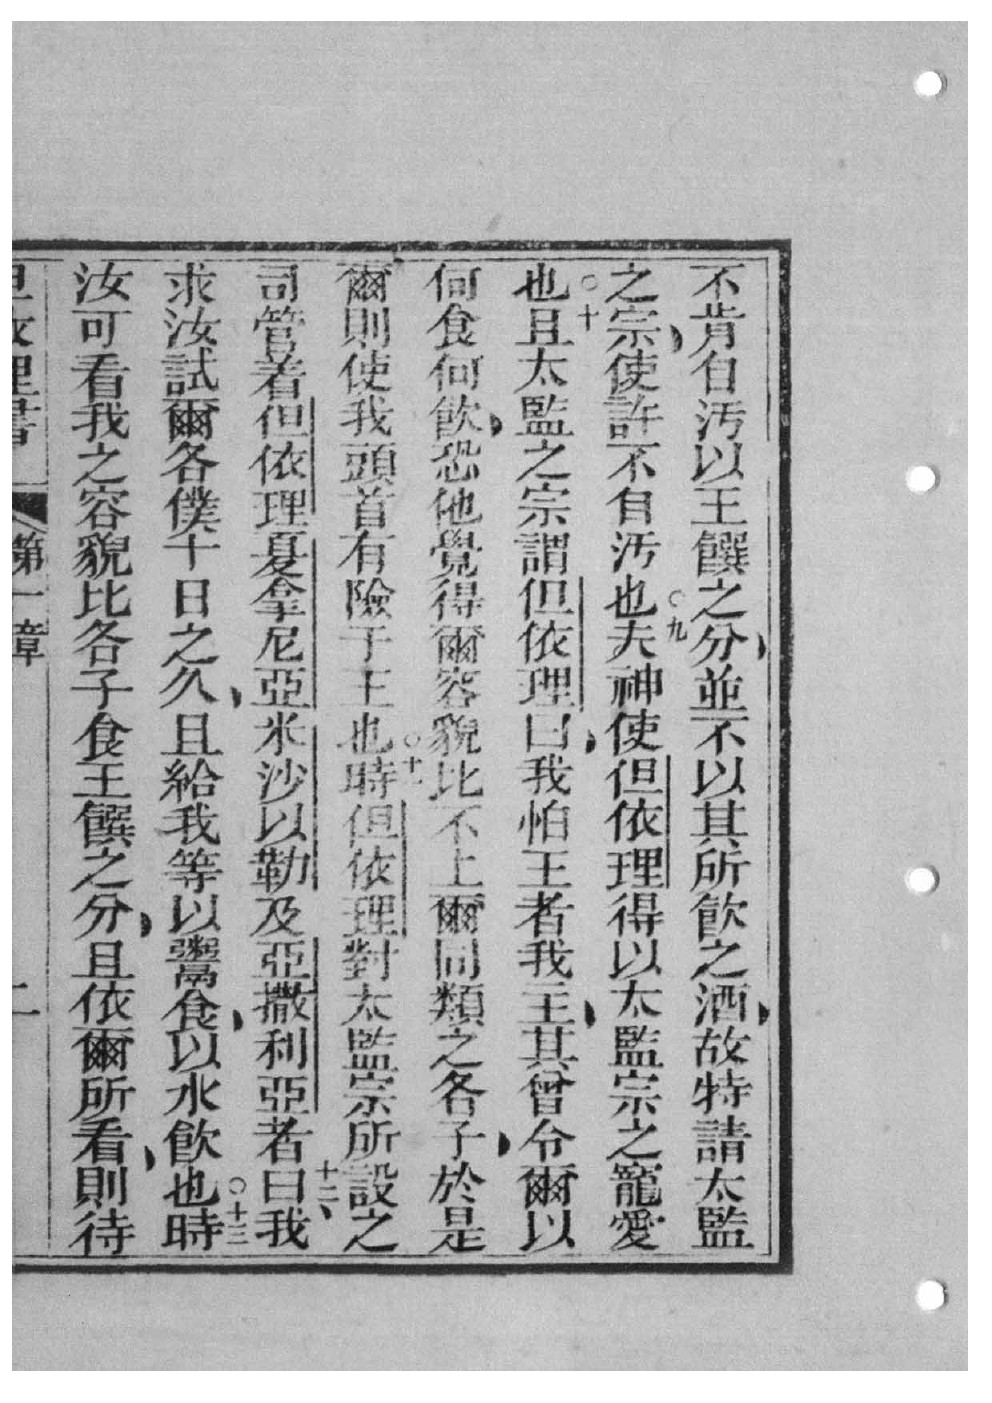 不肯自汚以王饌之分並不以其所飮之酒故特請太監
之宗使許不自汚也○九夫神使但依理得以太監宗之寵愛
也○十且太監之宗謂但依理曰我怕王者我主其曾令爾以
何食何飮恐他覺得爾容貌比不上爾同類之各子於是
爾則使我頭首有險于王也○十一時但依理對太監宗所設之
司管着但依理夏拿尼亞米沙以勒及亞撒利亞者曰十二我
求汝試爾各僕十日之久且給我等以鬻食以水飮也○十三時
汝可看我之容貌比各子食王饌之分且依爾所看則待
理書 第一章 二